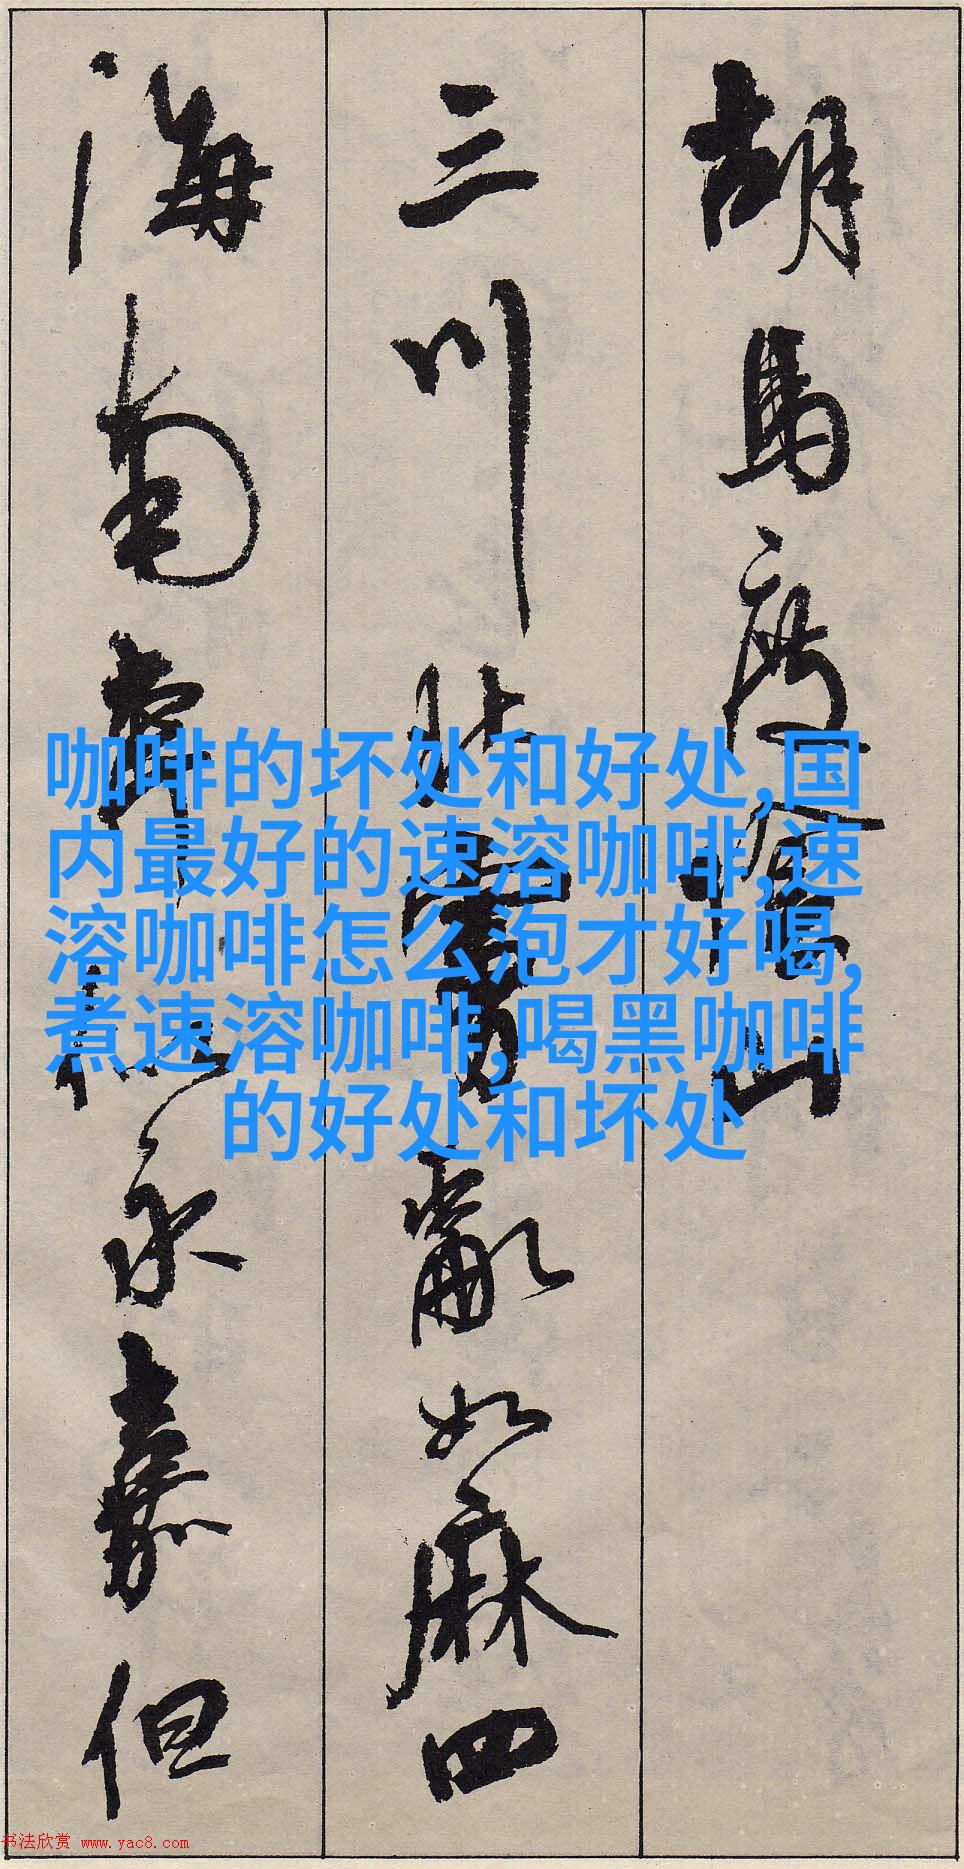 胡馬度陰山
三川北虜亂如麻四
海南奔似永嘉但
咖啡的坏处和好处,国
内最好的速溶咖啡,速
溶咖啡怎么泡才好喝,
煮速溶咖啡,喝黑咖啡
的好处和坏处
书法欣赏 www.yac8.com